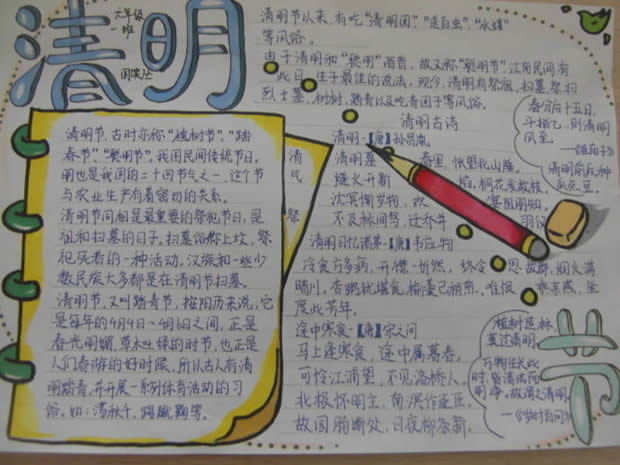 清明
六年级
一班
清明节以来,有吃“清明团”、“走白虫”、“水嬉”
等风俗。
由于清明和“聪明”谐音,故又称“聪明节”,江南民间有
此日 生子最佳的说法。现今,清明有祭祖、扫墓、祭扫
烈士墓、树树、踏青以及吃青团子等风俗。
春分后十五日,
斗指乙,则清明
风至。
—《淮南子》
清明前后,种
瓜点豆。
清明古诗
清明-【唐】孙昌胤
清明暮春里,怅望北山陲。
燧火开新焰,桐花发故枝。
沈冥惭岁物,欢宴阻朋知。
不及林间鸟,迁乔并羽仪
清明日忆诸弟-【唐】韦应物
冷食方多病,开襟一忻然。终令思故郡,烟火满
晴川。杏粥犹堪食,榆羹已稍煎。唯恨乖亲燕,坐
度此芳年。
途中寒食-【唐】宋之问
马上逢寒食,途中属暮春。
可怜江浦望,不见洛桥人。
北极怀明主,南溟作逐臣。
故园肠断处,日夜柳条新。
清明节,古时亦称“植树节”、“踏
春节”、“聪明节”,我国民间传统节日。清
明也是我国的二十四节气之一,这个节气
与农业生产有着密切的关系。
清明节同相是最重要的祭祀节日,是祭
祖和扫墓的日子。扫墓俗称上坟,祭
祀死者的一种活动。汉族和一些少
数民族大多都是在清明节扫墓。
清明节,又叫踏青节,按阳历来说,它
是每年的4月4日~4月6日之间,正是
春光明媚,草木吐绿的时节,也正是
人们春游的好时候,所以古人有清
明踏青,并开展一系列体育活动的习
俗。如:荡秋千、踢蹴鞠等。
植树造林,
莫过清明。
万物生长此
时,皆清洁而
明净。故谓之清明。
—《岁时百问》
节